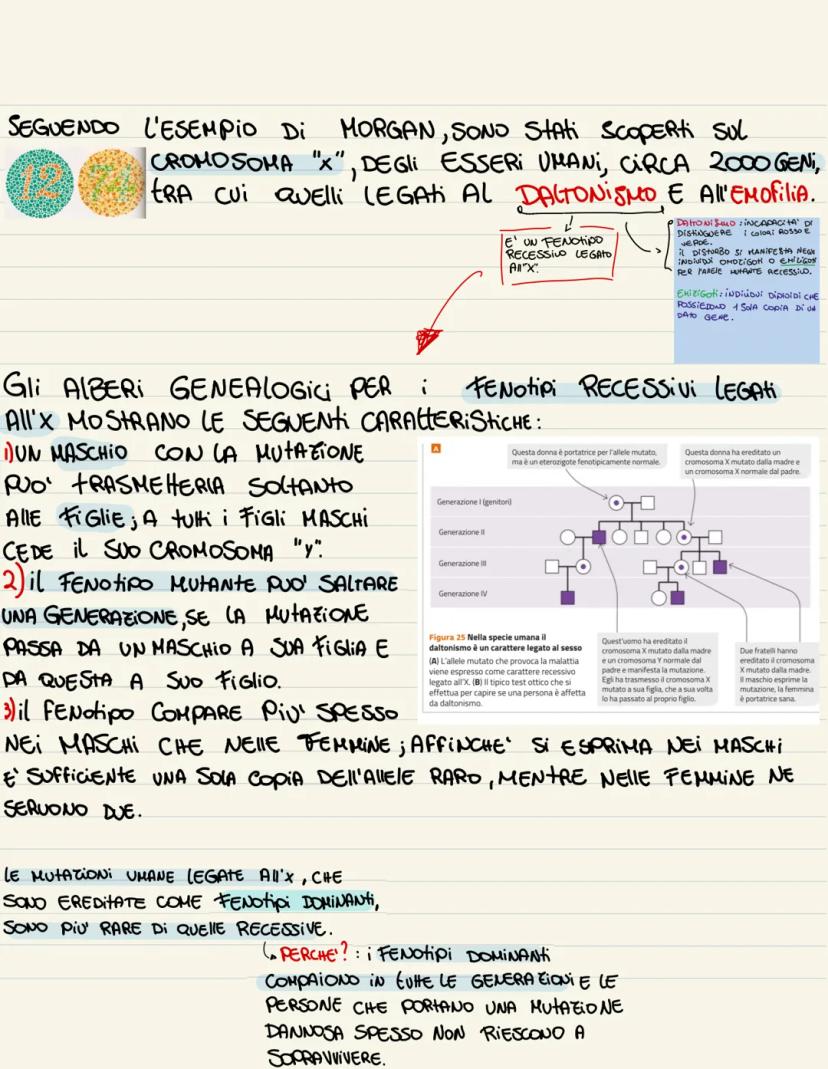 SEGUENDO L'ESEMPIO DI MORGAN, SONO STATI SCOPERTI SUL
12 74 CROMOSOMA "X", DEGLI ESSERI UMANI, CIRCA 2000 GENI,
TRA CUI QUELLI LEGATI AL DALTONISMO E ALL'EMOFILIA.
E' UN FENOTIPO
RECESSIVO LEGATO
ALL'"X".
DALTONISMO: INCAPACITA' DI
DISTINGUERE I COLORI ROSSO E
VERDE.
IL DISTURBO SI MANIFESTA NEGLI
INDIVIDUI OMOZIGOTI O EMIZIGOTI
PER L'ALLELE MUTANTE RECESSIVO.
EMIZIGOTI: INDIVIDUI DIPLOIDI CHE
POSSIEDONO 1 SOLA COPIA DI UN
DATO GENE.
GLI ALBERI GENEALOGICI PER I FENOTIPI RECESSIVI LEGATI
ALL'X MOSTRANO LE SEGUENTI CARATTERISTICHE:
1) UN MASCHIO CON LA MUTAZIONE
PUO' TRASMETTERLA SOLTANTO
ALLE FIGLIE; A TUTTI I FIGLI MASCHI
CEDE IL SUO CROMOSOMA "Y".
2) IL FENOTIPO MUTANTE PUO' SALTARE
UNA GENERAZIONE, SE LA MUTAZIONE
PASSA DA UN MASCHIO A SUA FIGLIA E
DA QUESTA A SUO FIGLIO.
3) IL FENOTIPO COMPARE PIU' SPESSO
NEI MASCHI CHE NELLE FEMMINE; AFFINCHE' SI ESPRIMA NEI MASCHI
E' SUFFICIENTE UNA SOLA COPIA DELL'ALLELE RARO, MENTRE NELLE FEMMINE NE
SERVONO DUE.
A
Questa donna è portatrice per l'allele mutato,
ma è un eterozigote fenotipicamente normale.
Questa donna ha ereditato un
cromosoma X mutato dalla madre e
un cromosoma X normale dal padre.
Generazione I (genitori)
Generazione II
Generazione III
Generazione IV
Figura 25 Nella specie umana il
daltonismo è un carattere legato al sesso
(A) L'allele mutato che provoca la malattia
viene espresso come carattere recessivo
legato all'X. (B) Il tipico test ottico che si
effettua per capire se una persona è affetta
da daltonismo.
Quest'uomo ha ereditato il
cromosoma X mutato dalla madre
e un cromosoma Y normale dal
padre e manifesta la mutazione.
Egli ha trasmesso il cromosoma X
mutato a sua figlia, che a sua volta
lo ha passato al proprio figlio.
Due fratelli hanno
ereditato il cromosoma
X mutato dalla madre.
Il maschio esprime la
mutazione, la femmina
è portatrice sana.
LE MUTAZIONI UMANE LEGATE ALL'X, CHE
SONO EREDITATE COME FENOTIPI DOMINANTI,
SONO PIU' RARE DI QUELLE RECESSIVE.
PERCHE'?: I FENOTIPI DOMINANTI
COMPAIONO IN TUTTE LE GENERAZIONI E LE
PERSONE CHE PORTANO UNA MUTAZIONE
DANNOSA SPESSO NON RIESCONO A
SOPRAVVIVERE.